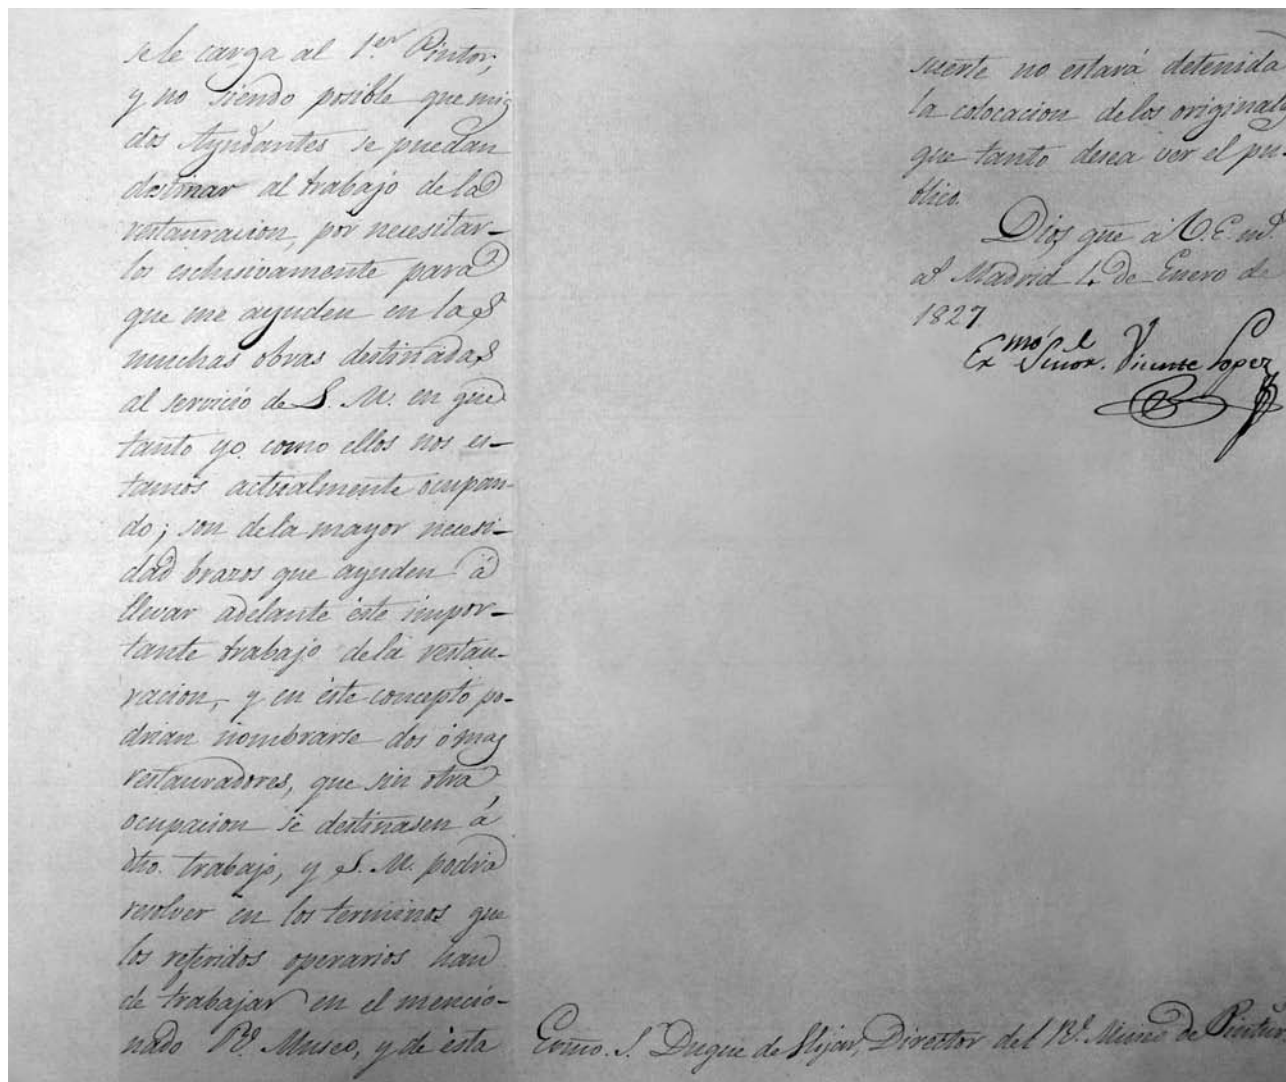 se le carga al 1.er Pintor,
y no siendo posible que mis
dos Ayudantes se puedan
destinar al trabajo de la
restauracion, por necesitar-
los esclusivamente para
que me ayuden en las
muchas obras destinadas
al servicio de S. M. en que
tanto yo como ellos nos es-
tamos actualmente ocupan-
do; son de la mayor necesi-
dad brazos que ayuden á
llevar adelante éste impor-
tante trabajo de la restau-
racion, y en éste concepto po-
drian nombrarse dos ó mas
restauradores, que sin otra
ocupacion se destinasen á
dho. trabajo, y S. M. podria
resolver en los terminos que
los referidos operarios han
de trabajar en el mencio-
nado Rl. Museo, y de ésta
suerte no estará detenida
la colocacion de los originales
que tanto desea ver el pu-
blico.
Dios gue á V. E. ms.
as. Madrid 4 de Enero de
1827
Exmo Señor. Vicente Lopez
Exmo. S. Duque de Hijar, Director del Rl. Museo de Pinturas